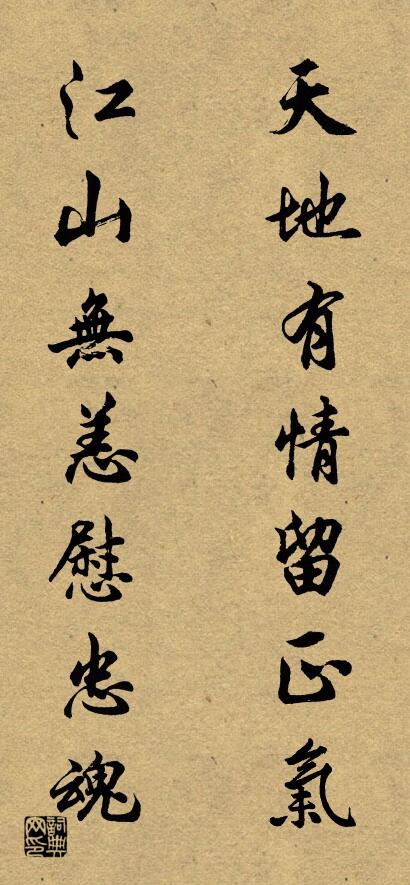 天地有情留正氣
江山無恙慰忠魂
詞典網印